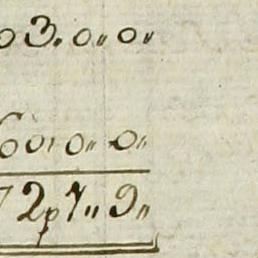 03. 0„ 0„
60„ 0„ 0„
72p 7„ 9„